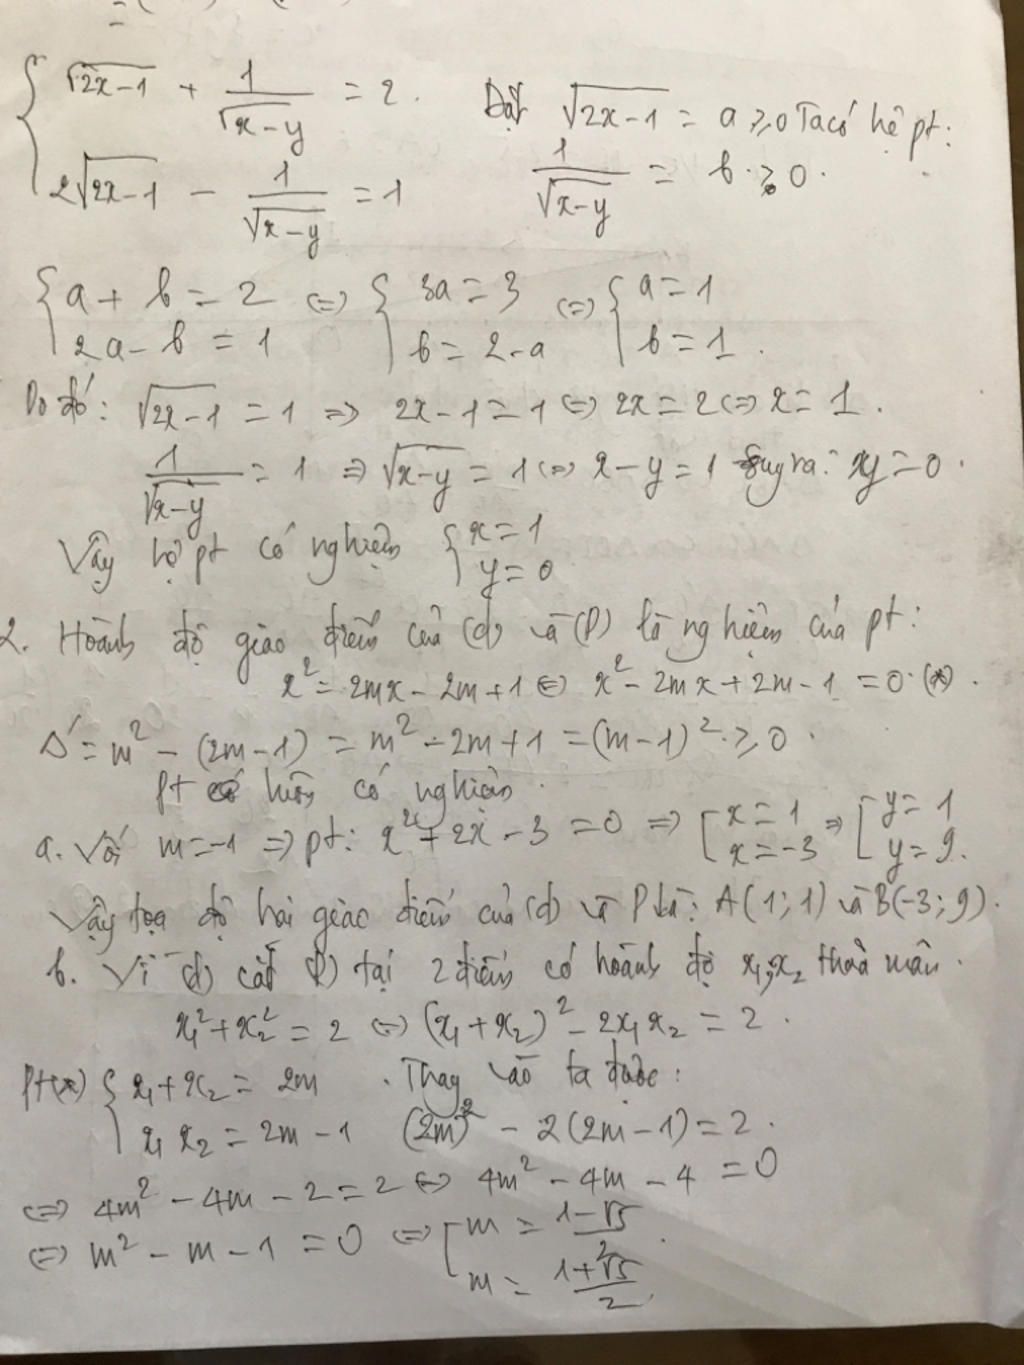 { √(2x-1) + 1/√(x-y) = 2. Đặt √(2x-1) = a ≥ 0 Ta có hệ pt:
2√(2x-1) - 1/√(x-y) = 1 1/√(x-y) = b ≥ 0.
{ a + b = 2 (=) { 3a = 3 (=) { a = 1
2a - b = 1 b = 2 - a b = 1.
Do đó: √(2x-1) = 1 => 2x - 1 = 1 <=> 2x = 2 <=> x = 1.
1/√(x-y) = 1 => √(x-y) = 1 <=> x - y = 1 Suy ra: y = 0.
Vậy hệ pt có nghiệm { x = 1
y = 0
2. Hoành độ giao điểm của (d) và (P) là nghiệm của pt:
x² = 2mx - 2m + 1 <=> x² - 2mx + 2m - 1 = 0. (*).
Δ' = m² - (2m - 1) = m² - 2m + 1 = (m - 1)² ≥ 0.
Pt luôn có nghiệm.
a. Với m = -1 => pt: x² + 2x - 3 = 0 => [ x = 1 => [ y = 1
x = -3 y = 9.
Vậy tọa độ hai giao điểm của (d) và P là: A(1; 1) và B(-3; 9).
b. Vì (d) cắt (P) tại 2 điểm có hoành độ x₁; x₂ thoả mãn.
x₁² + x₂² = 2 <=> (x₁ + x₂)² - 2x₁x₂ = 2.
Pt(*) { x₁ + x₂ = 2m. Thay vào ta được:
x₁ x₂ = 2m - 1 (2m)² - 2(2m - 1) = 2.
<=> 4m² - 4m - 2 = 2 <=> 4m² - 4m - 4 = 0
<=> m² - m - 1 = 0 <=> [ m = (1-√5)/2.
m = (1+√5)/2.